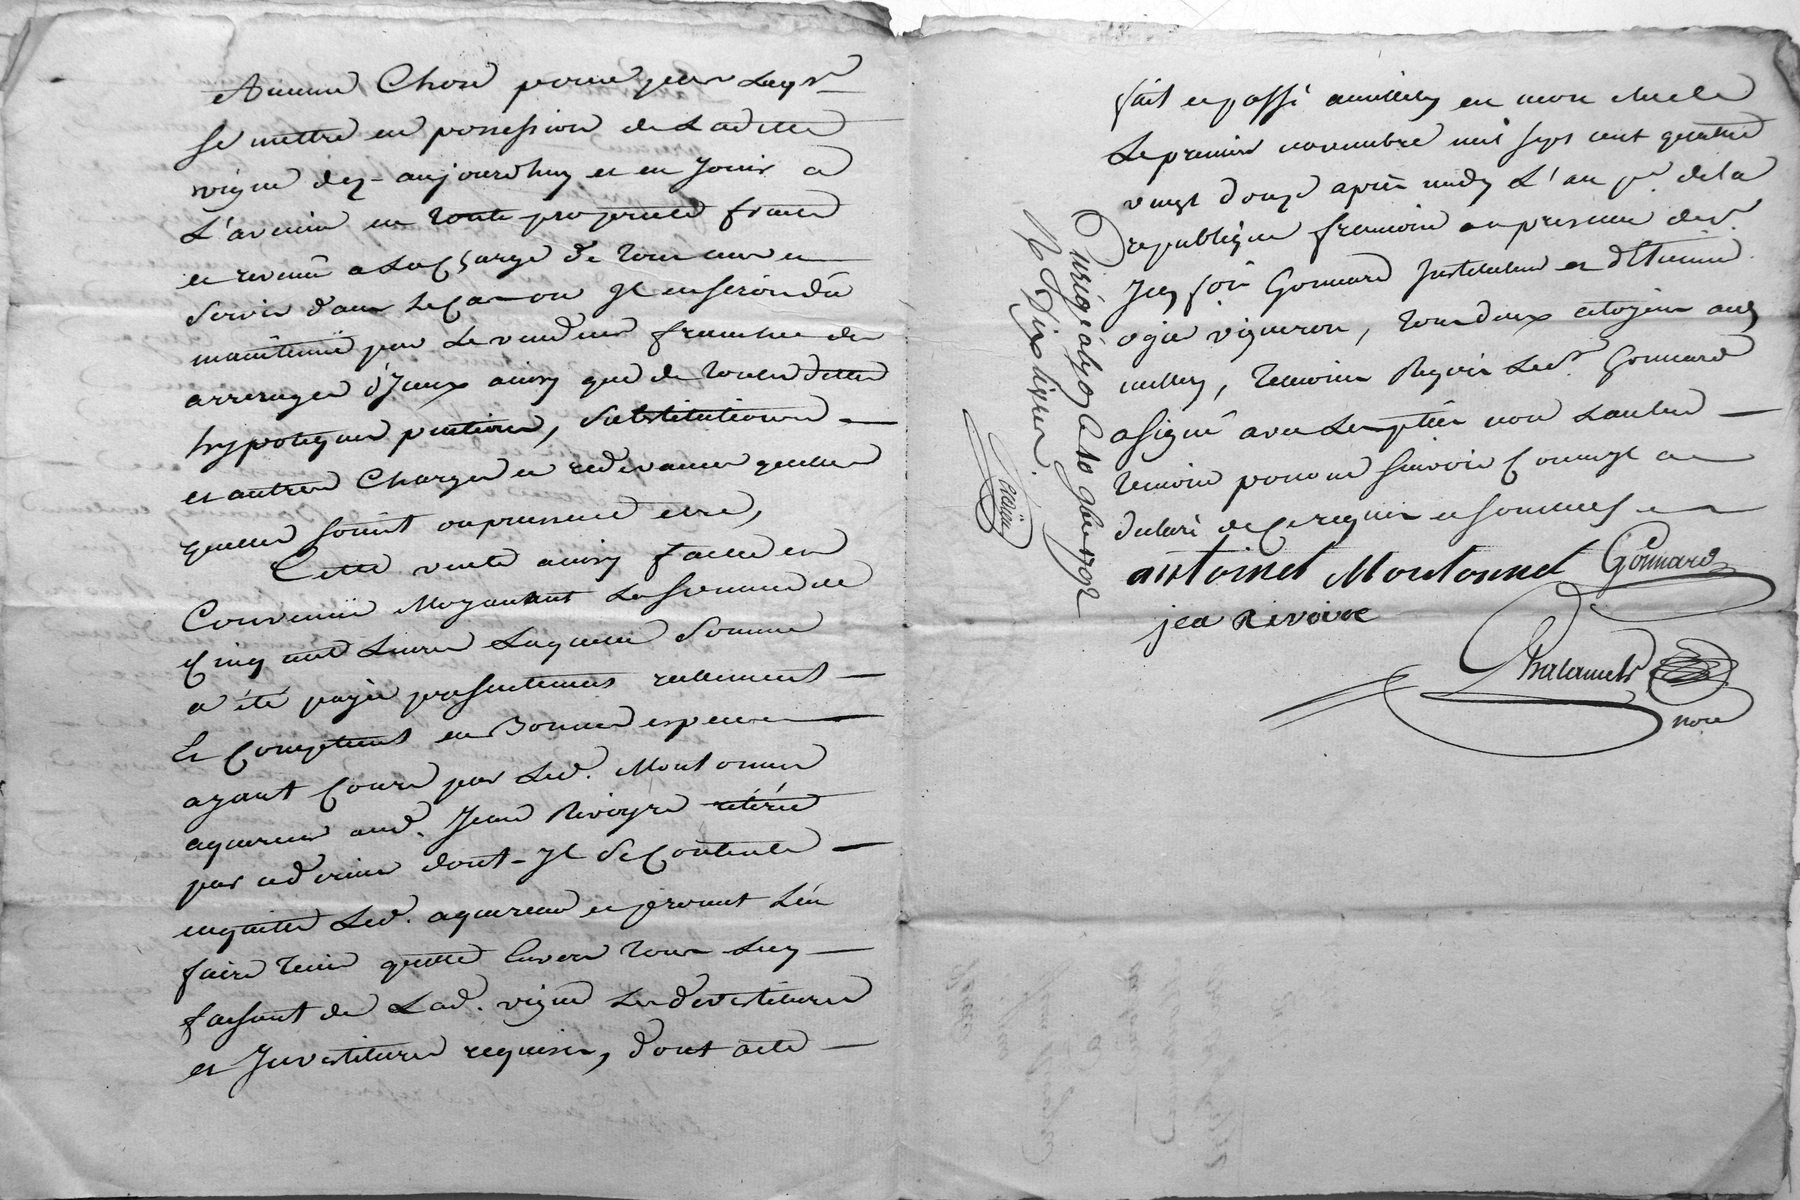 Aucune Chose pour par Luy
se mettre en possession de Laditte
vigne dez-aujourdhuy et en Jouir a
L'avenir en toute propriete fruits
et revenu a La Charge de tous cens et
servis dans Le Cas ou Jl en seroit dû
maintenue par Le vendeur franche des
arrerages d'Jceux ainsy que de toutes dettes
hypoteques pentions, substitutions —
et autres Charges et redevances quelles
quelles soint ou puissent etre,
Cette vente ainsy faitte et
Convenüe Moyenant La somme de
Cinq cent Livres Laquelle somme
a été payée presentement reellement —
Et Comptant en Bonnes especes —
ayant Cours par Led. Montonnet
aquereur aud. Jean Rivoyre
dont-Jl se Contente —
enquitte Led. aquereur et promet L'en
faire tenir quitte Envers tous Luy —
faisant de Lad. vigne Les devestitures
et Jnvestitures requises, dont acte —
fait et passé a en mon etude
Le premier novembre mil sept cent quatre
vingt douze après midy L'an 1er de la
republique francoise en presence de
Gonnard Jnstituteur et d'Etienne
ogier vigneron, tous deux citoyens aud
, temoins Requis Led. Gonnard
a signé avec Les parties non L'autre —
temoin pour ne savoir Comme Jl a —
declaré de Ce requis et sommés —
antoinet Montonnet Gonnard
jea Revoire
Chalamel
nore
Enrigé a le 10 9bre 1792
R Dix livres.